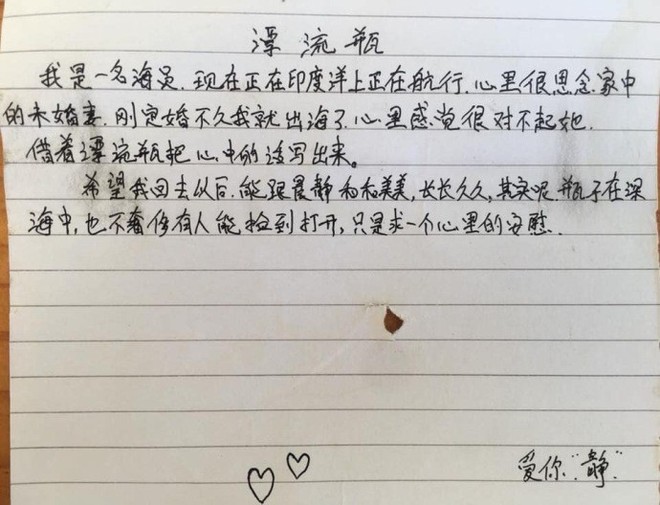 漂流瓶
我是一名海员.现在正在印度洋上正在航行.心里很思念家中
的未婚妻.刚定婚不久我就出海了.心里感觉很对不起她.
借着漂流瓶把心中的话写出来。
希望我回去以后.能跟晨静和和美美,长长久久,其实呢.瓶子在深
海中,也不奢侈有人能捡到打开,只是求一个心里的安慰.
爱你"静"